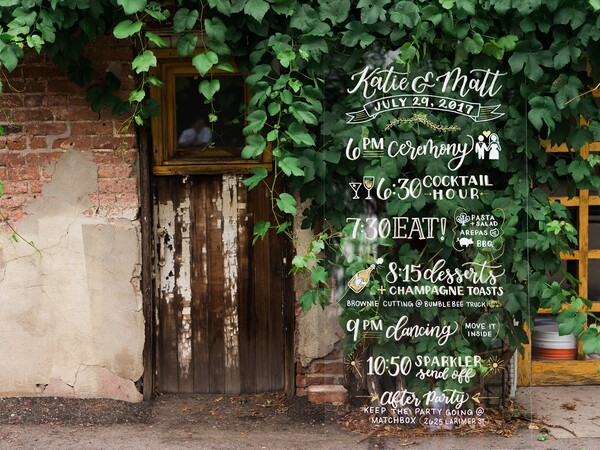 Katie & Matt
JULY 29, 2017
6 PM ceremony
6:30 COCKTAIL HOUR
7:30 EAT!
PASTA + SALAD
AREPAS
BBQ
8:15 desserts
+ CHAMPAGNE TOASTS
BROWNIE CUTTING @ BUMBLEBEE TRUCK
9 PM dancing
MOVE IT INSIDE
10:50 SPARKLER send off
After Party
KEEP THE PARTY GOING @
MATCHBOX 2625 LARIMER ST